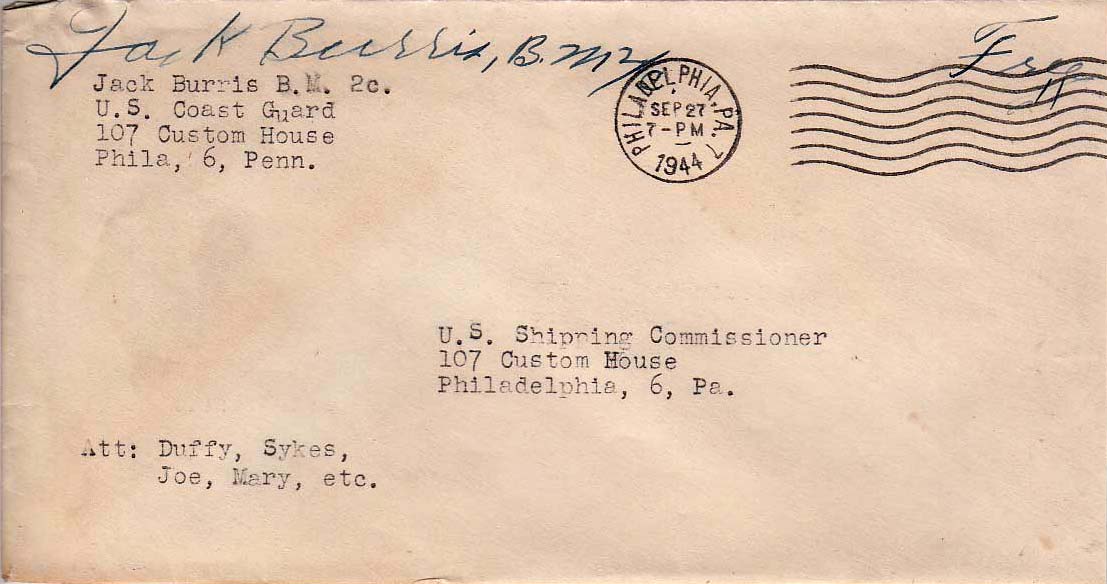 Jack Burris, B.M.2/c
Free
Jack Burris B.M. 2c.
U.S. Coast Guard
107 Custom House
Phila, 6, Penn.
PHILADELPHIA, PA. 7
SEP 27
7-PM
1944
U.S. Shipping Commissioner
107 Custom House
Philadelphia, 6, Pa.
Att: Duffy, Sykes,
Joe, Mary, etc.